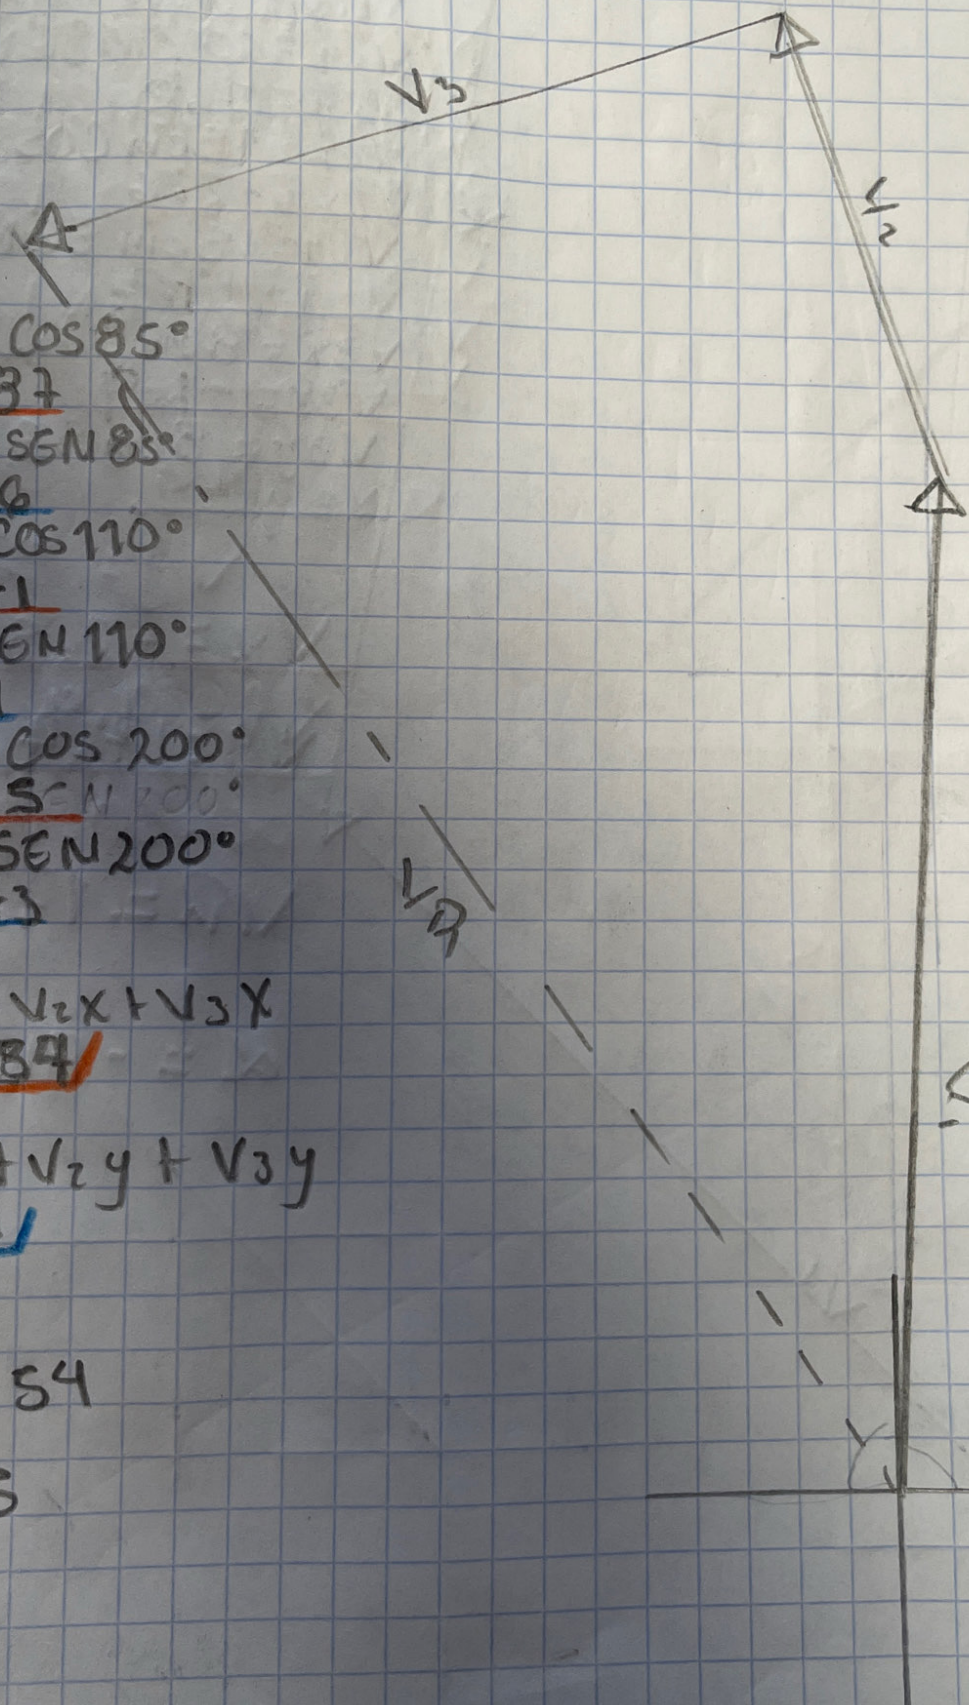 V3
COS 85°
37
SEN 85°
6
COS 110°
-1
EN 110°
COS 200°
SEN 200°
SEN 200°
-3
V2x + V3x
34
+ V2y + V3y
54